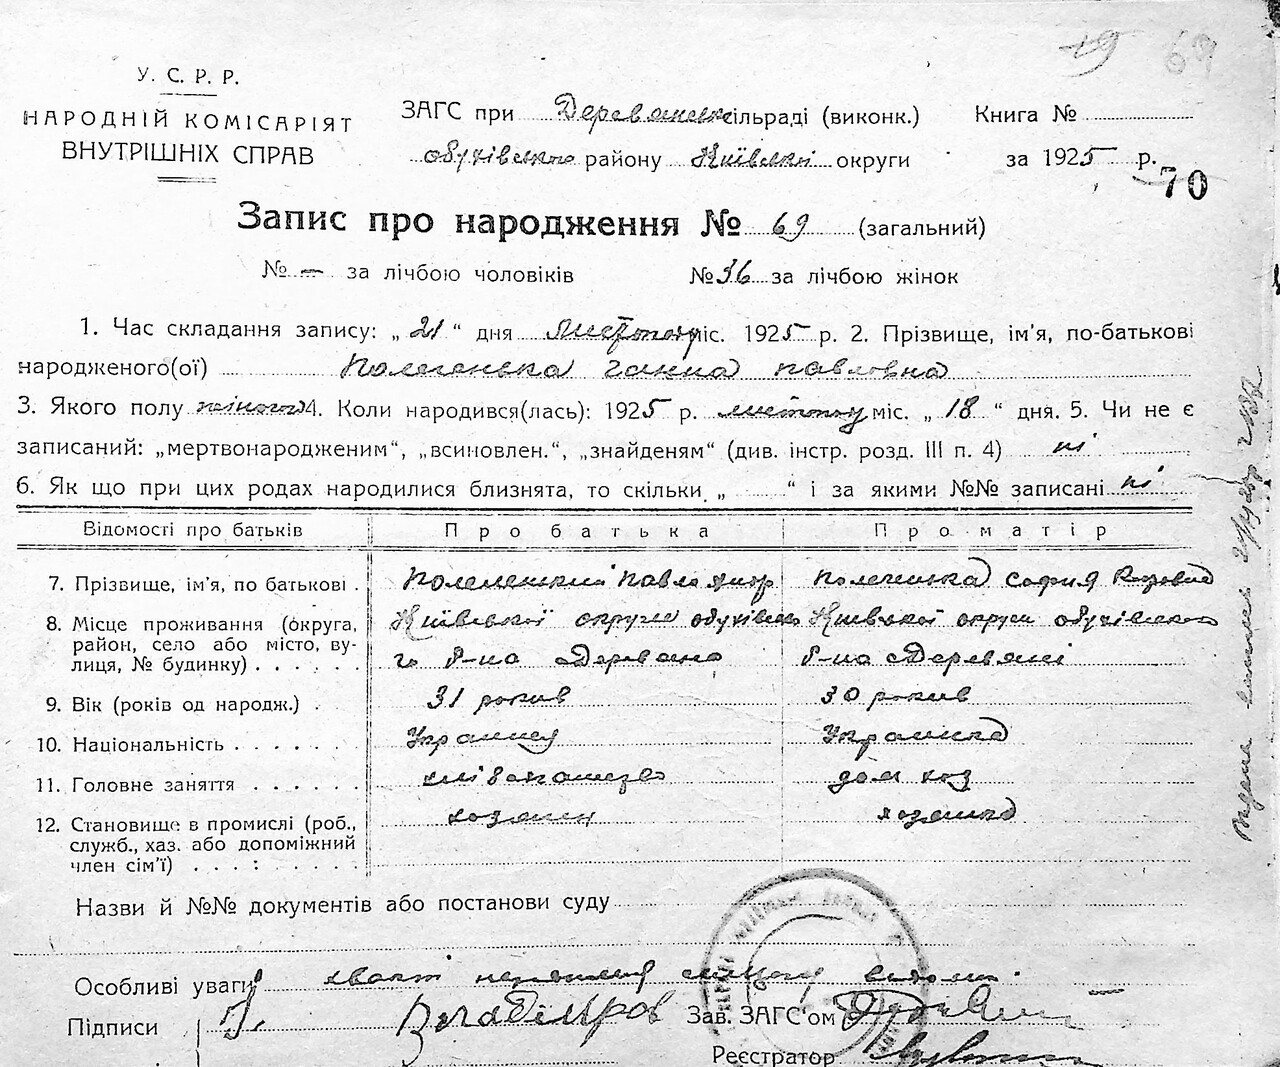 69
У. С. Р. Р.
НАРОДНІЙ КОМІСАРІЯТ
ВНУТРІШНІХ СПРАВ
ЗАГС при сільраді (виконк.)
обухівського району Київської округи
Книга №
за 1925 р.
70
Запис про народження № 69 (загальний)
№ — за лічбою чоловіків № 36 за лічбою жінок
1. Час складання запису: „ 21 “ дня листопаду міс. 1925 р. 2. Прізвище, ім'я, по-батькові
народженого(ої) Ганна Павловна
3. Якого полу жіного 4. Коли народився(лась): 1925 р. листопаду міс. „ 18 “ дня. 5. Чи не є
записаний: „мертвонародженим“, „всиновлен.“, „знайденям“ (див. інстр. розд. III п. 4) ні
6. Як що при цих родах народилися близнята, то скільки „ “ і за якими №№ записані ні
Відомості про батьків Про батька Про матір
7. Прізвище, ім'я, по батькові . Павло София
8. Місце проживання (округа, Київської округи обухівсько Київської округи обухівського
район, село або місто, ву- го р-на р-на
лиця, № будинку) . . . . . .
9. Вік (років од народж.) . 31 рокив 30 рокив
10. Національність . . . . . . . Украинец Украинка
11. Головне заняття . . . . . . дом хоз
12. Становище в промислі (роб., хозяин хозяика
служб., хаз. або допоміжний
член сім'ї) . . . : . . . . .
Назви й №№ документів або постанови суду
Особливі уваги
Підписи
Зав. ЗАГС'ом
Реєстратор